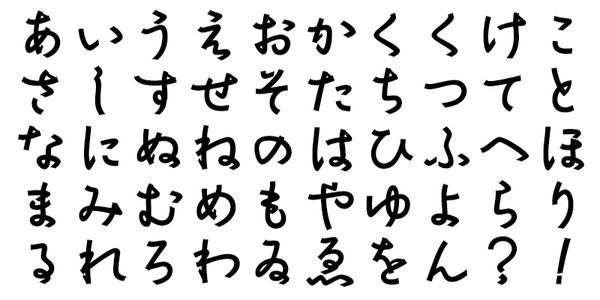 あいうえおかくくけこ
さしすせそたちつてと
なにぬねのはひふへほ
まみむめもやゆよらり
るれろわゐゑをん?!